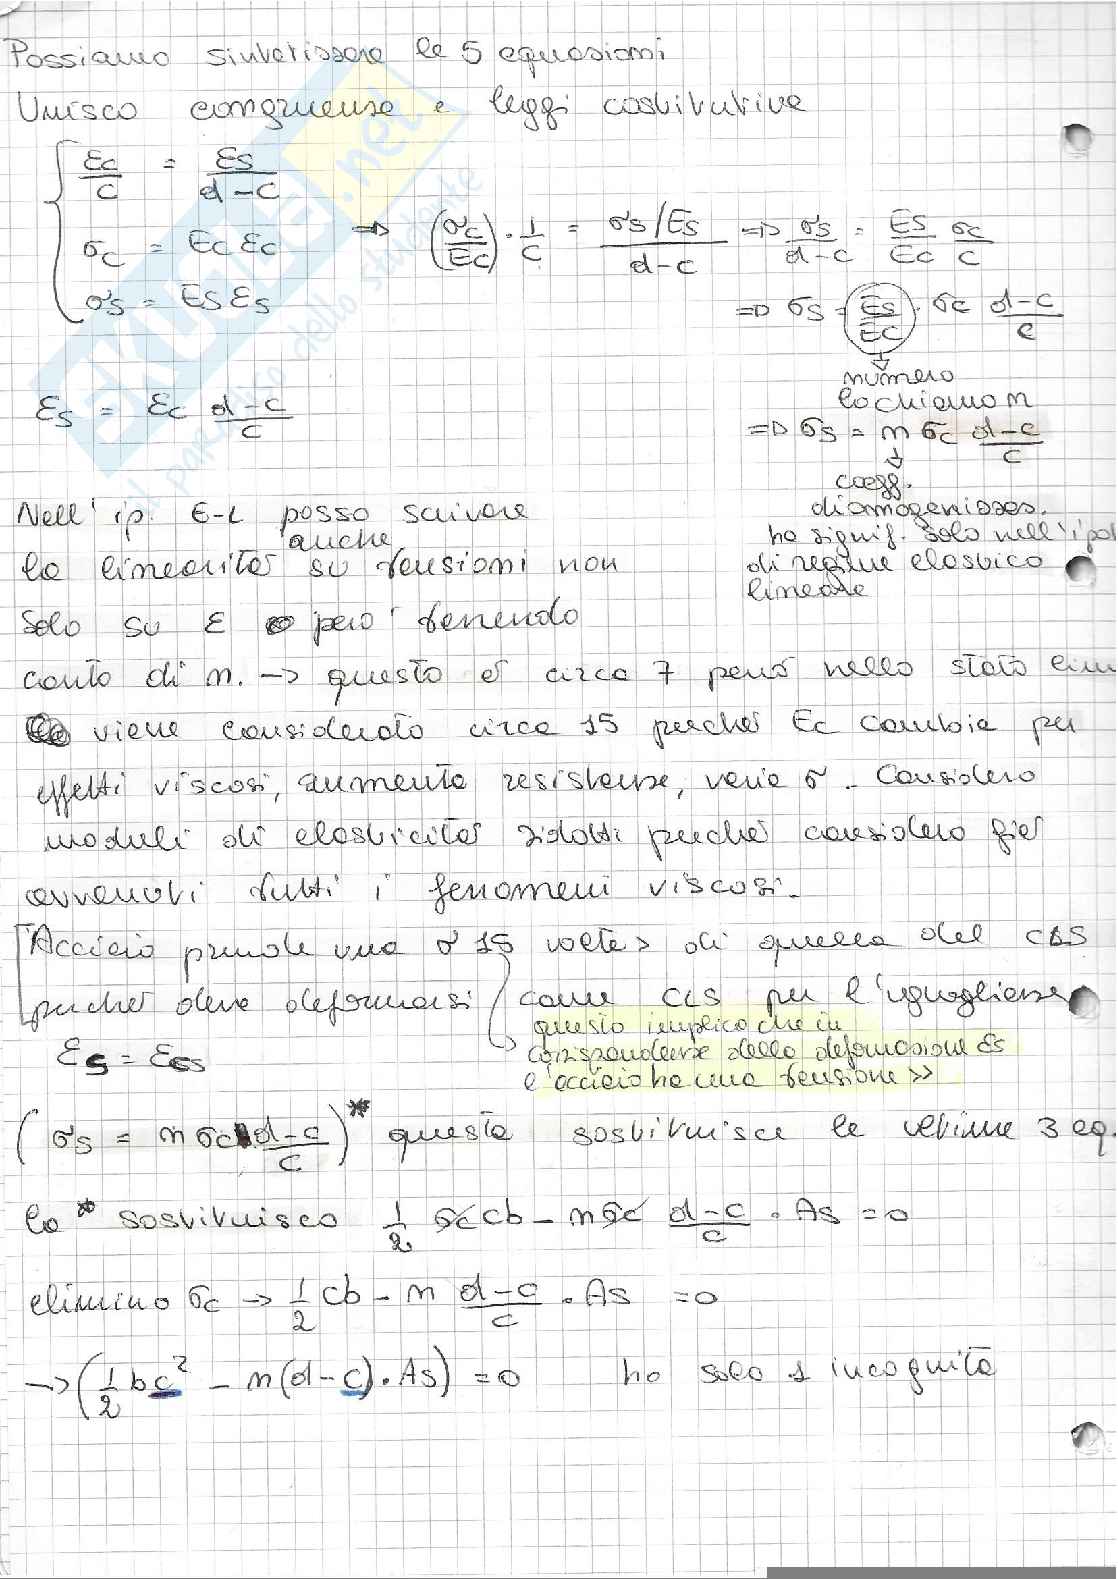 Possiamo sintetizzare le 5 equazioni
Unisco congruenze e leggi costitutive
εc/c = εs/(d-c)
σc = Ec εc => (σc/Ec) · 1/c = (σs/Es)/(d-c) => σs/(d-c) = Es/Ec σc/c
σs = Es εs
=> σs = Es/Ec · σc (d-c)/c
numero
lo chiamo n
εs = εc (d-c)/c
=> σs = n σc (d-c)/c
coeff.
di omogenizzaz.
ha signif. solo nell'ipot
di regime elastico
lineare
Nell'ip. E-L posso scrivere
anche
la linearità su tensioni non
solo su ε però tenendo
conto di n. -> questo è circa 7 però nello stato lim
viene considerato circa 15 perché Ec cambia per
effetti viscosi, aumenta resistenza, varia σ. Considero
moduli di elasticità ridotti perché considero già
avvenuti tutti i fenomeni viscosi.
Acciaio prende una σ 15 volte > di quella del CLS
perché deve deformarsi come CLS per l'uguaglianza
questo implica che in
corrispondenza della deformazione εs
l'acciaio ha una tensione >>
εs = εcs
(σs = n σc (d-c)/c)* questa sostituisce le ultime 3 eq.
la * sostituisco 1/2 σc cb - n σc (d-c)/c · As = 0
elimino σc -> 1/2 cb - n (d-c)/c · As = 0
-> (1/2 bc² - n(d-c) · As) = 0 ho solo 1 incognita
EXVGIA.net
il paradiso dello studente